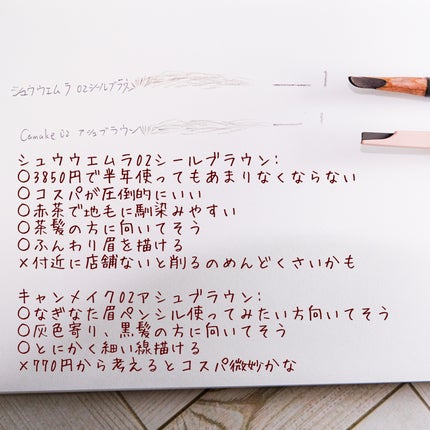 シュウウエムラ 02シールブラウン
Canmake 02 アシュブラウン
シュウウエムラ02シールブラウン:
○3850円で半年使ってもあまりなくならない
○コスパが圧倒的にいい
○赤茶で地もに馴染みやすい
○茶髪の方に向いてそう
○ふんわり眉を描ける
×付近に店舗ないと削るのめんどくさいかも
キャンメイク02アシュブラウン:
○なぎなた眉ペンシル使ってみたい方向いてそう
○灰色寄り、黒髪の方に向いてそう
○とにかく細い線描ける
×770円から考えるとコスパ微妙かな